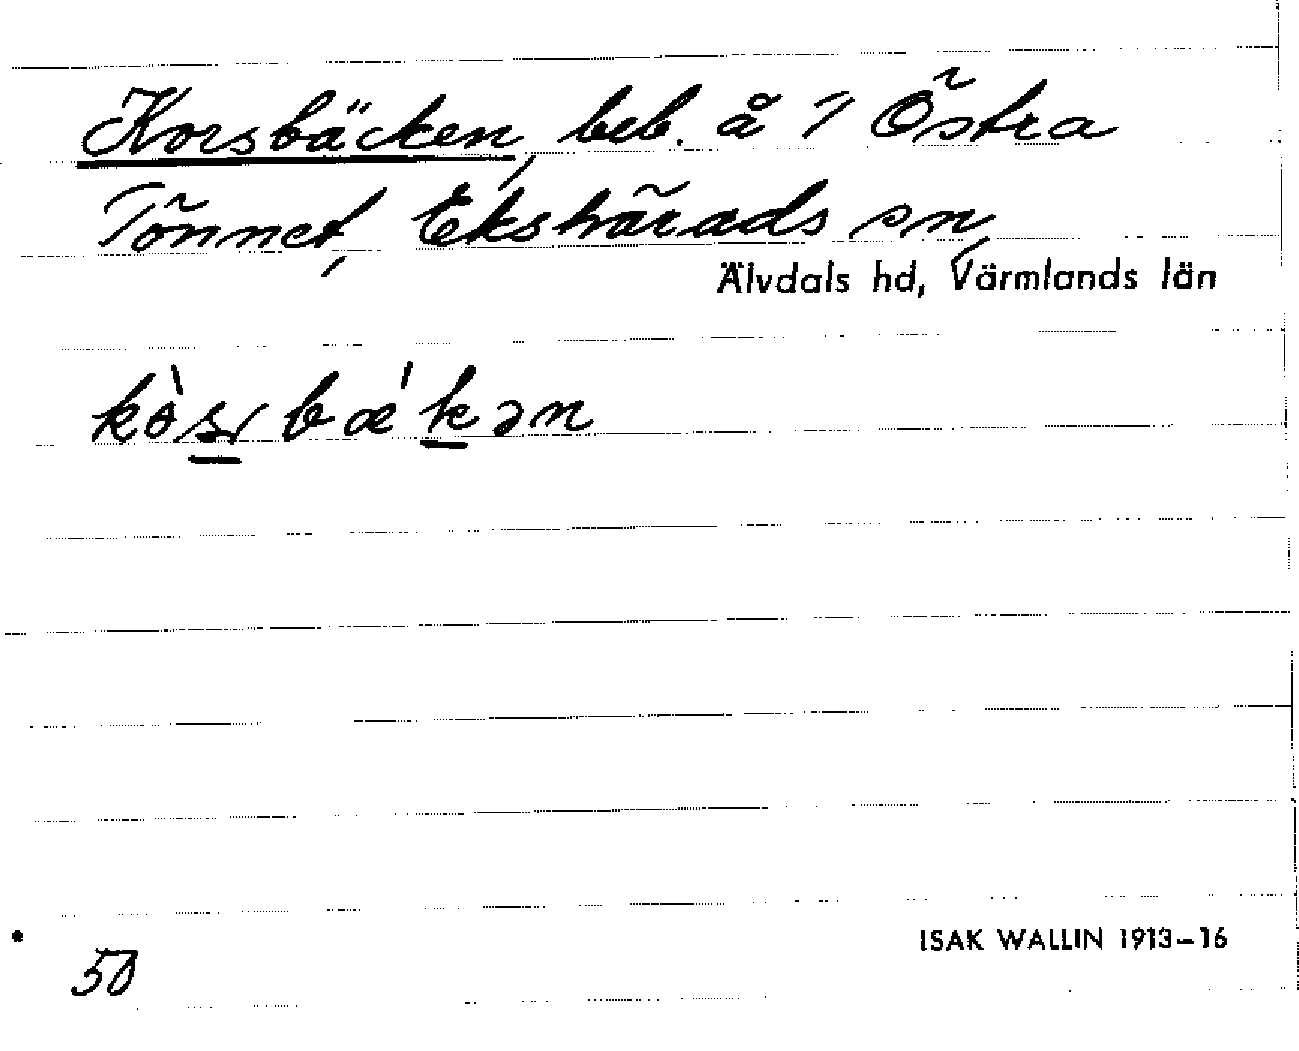 Korsbäcken, beb. å 1/1 Östra
Tönnet, Ekshärads sn,
Älvdals hd, Värmlands län
kòsbæ´kən
50
ISAK WALLIN 1913–16